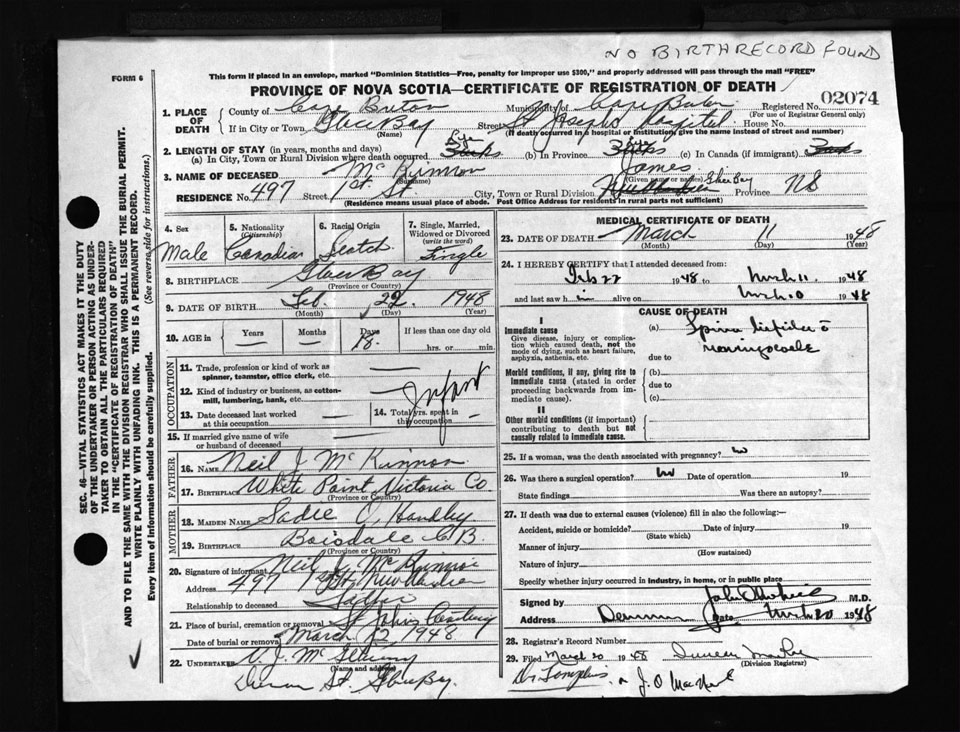 NO BIRTH RECORD FOUND
FORM 6
This form if placed in an envelope, marked "Dominion Statistics—Free, penalty for improper use $300," and properly addressed will pass through the mail "FREE"
PROVINCE OF NOVA SCOTIA—CERTIFICATE OF REGISTRATION OF DEATH
02074
1. PLACE OF DEATH
County of Cape Breton Municipality of Cape Breton Registered No.
(For use of Registrar General only)
If in City or Town Glace Bay Street St Josephs Hospital House No.
(Name) (If death occurred in a hospital or institution, give name instead of street and number)
2. LENGTH OF STAY (in years, months and days)
(a) In City, Town or Rural Division where death occurred (b) In Province (c) In Canada (if immigrant)
3. NAME OF DECEASED McKinnon James
(Surname) (Given name or names) Glace Bay
RESIDENCE No. 497 Street 1st St. City, Town or Rural Division Province NS
(Residence means usual place of abode. Post Office Address for residents in rural parts not sufficient)
4. Sex Male
5. Nationality (Citizenship) Canadian
6. Racial Origin Scotch
7. Single, Married, Widowed or Divorced (write the word) Single
8. BIRTHPLACE Glace Bay
(Province or Country)
9. DATE OF BIRTH Feb. 22 1948
(Month) (Day) (Year)
10. AGE in Years Months Days 18 If less than one day old
hrs. or min.
OCCUPATION
11. Trade, profession or kind of work as spinner, teamster, office clerk, etc.
12. Kind of industry or business, as cotton-mill, lumbering, bank, etc.
Infant
13. Date deceased last worked at this occupation
14. Total yrs. spent in this occupation
15. If married give name of wife or husband of deceased
FATHER
16. Name Neil J McKinnon
17. Birthplace White Point Victoria Co
(Province or Country)
MOTHER
18. MAIDEN NAME Sadie C Handley
19. BIRTHPLACE Boisdale C B.
(Province or Country)
20. Signature of informant Neil J. McKinnon
Address 497 1st St New Aberdeen
Relationship to deceased Father
21. Place of burial, cremation or removal St Johns Cemetery
Date of burial or removal March 12 1948
22. UNDERTAKER V.J. McGillivray
(Name and address)
St. Glace Bay.
MEDICAL CERTIFICATE OF DEATH
23. DATE OF DEATH March 11 1948
(Month) (Day) (Year)
24. I HEREBY CERTIFY that I attended deceased from:
Feb 22 1948 to Mch 11 1948
and last saw him alive on Mch 10 1948
CAUSE OF DEATH
I
Immediate cause
Give disease, injury or complication which caused death, not the mode of dying, such as heart failure, asphyxia, asthenia, etc.
(a) Spina bifida c̄
meningocoele
due to
Morbid conditions, if any, giving rise to immediate cause (stated in order proceeding backwards from immediate cause).
(b)
due to
(c)
II
Other morbid conditions (if important) contributing to death but not causally related to immediate cause.
25. If a woman, was the death associated with pregnancy? no
26. Was there a surgical operation? no Date of operation 19
State findings Was there an autopsy?
27. If death was due to external causes (violence) fill in also the following:—
Accident, suicide or homicide? Date of injury 19
(State which)
Manner of injury
(How sustained)
Nature of injury
Specify whether injury occurred in industry, in home, or in public place
Signed by M.D.
Address Date Mch 20 1948
28. Registrar's Record Number
29. Filed March 20 1948 Duncan
(Division Registrar)
Dr Tompkins J. O MacNeil
SEC. 46—VITAL STATISTICS ACT MAKES IT THE DUTY
OF THE UNDERTAKER OR PERSON ACTING AS UNDERTAKER TO OBTAIN ALL THE PARTICULARS REQUIRED
IN THE "CERTIFICATE OF REGISTRATION OF DEATH"
AND TO FILE THE SAME WITH THE DIVISION REGISTRAR WHO SHALL ISSUE THE BURIAL PERMIT.
WRITE PLAINLY WITH UNFADING INK. THIS IS A PERMANENT RECORD.
Every item of information should be carefully supplied. (See reverse side for instructions.)